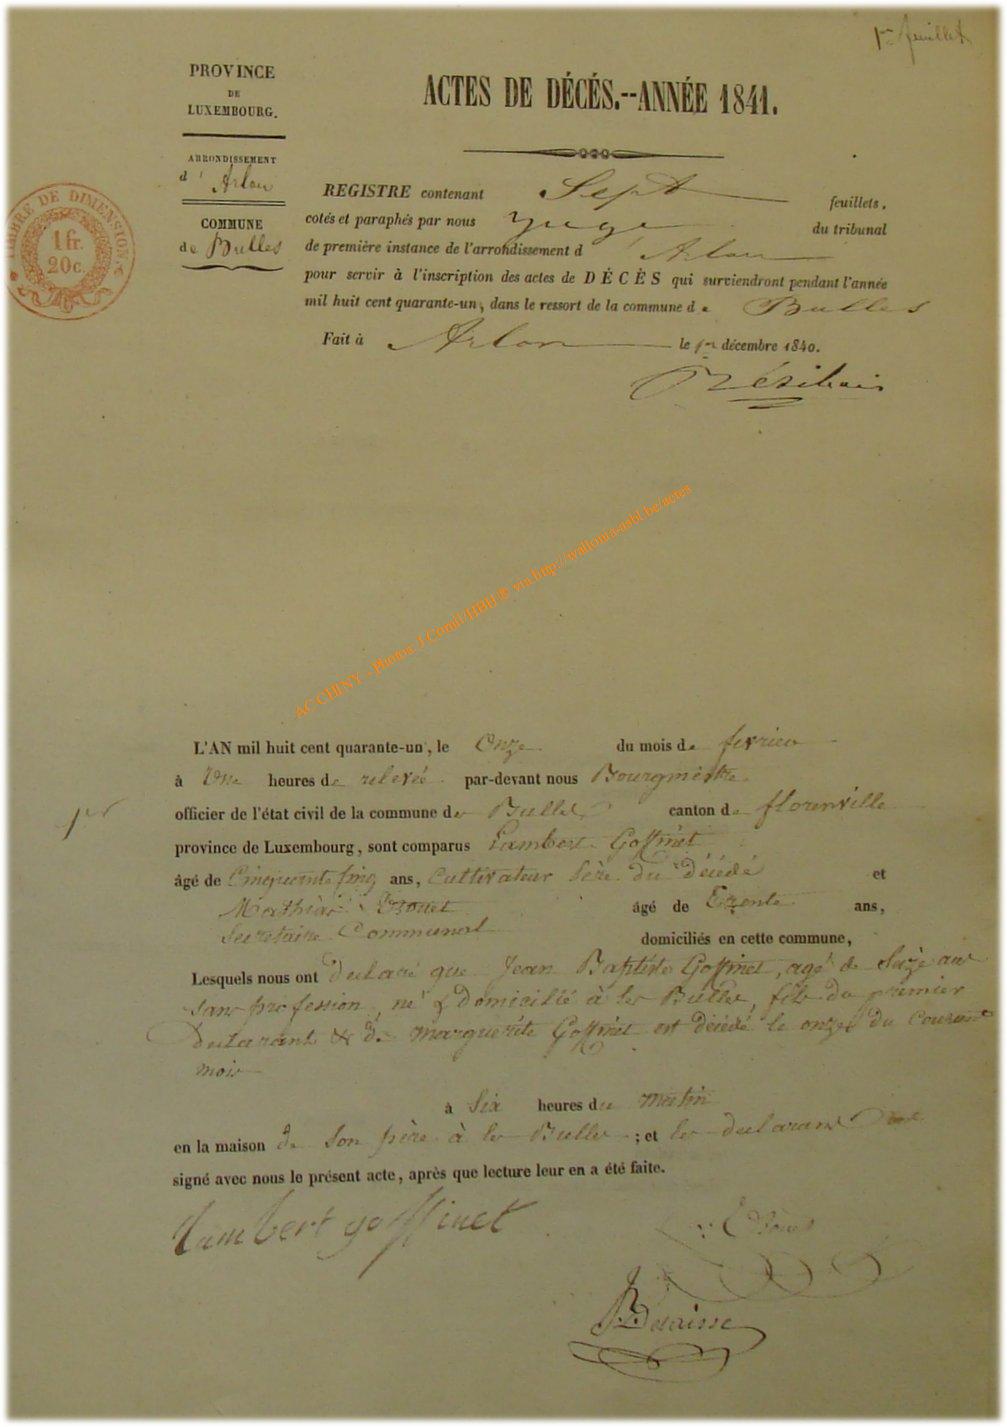 1er feuillet
PROVINCE
DE
LUXEMBOURG.
ARRONDISSEMENT
d' Arlon
COMMUNE
de Bulles
TIMBRE DE DIMENSION
1 fr.
20 c.
ACTES DE DÉCÉS.--ANNÉE 1841.
REGISTRE contenant Sept feuillets,
cotés et paraphés par nous Juge du tribunal
de première instance de l'arrondissement d'Arlon
pour servir à l'inscription des actes de DÉCÈS qui surviendront pendant l'année
mil huit cent quarante-un, dans le ressort de la commune de Bulles
Fait à Arlon le 1er décembre 1840.
AC CHINY - Photos: J Comil/HBH ® via http://wallonia-asbl.be/actes
1er
L'AN mil huit cent quarante-un, le onze du mois de fevrier
à Une heures de relevée par-devant nous Bourgmestre
officier de l'état civil de la commune des Bulles canton de florenville
province de Luxembourg, sont comparus Lambert Goffinet
âgé de Cinquante Cinq ans, Cultivateur père du décédé et
Mathias âgé de Trente ans,
Secretaire Communal domiciliés en cette commune,
Lesquels nous ont declaré que Jean Baptiste Goffinet, agé de Sèze ans
sans profession, né & domicilié à les Bulles, fils du premier
Declarant & de marguerite Goffinet est décédé le onze du courant
mois
à Six heures du matin
en la maison de son père à les Bulles ; et les declarans ont
signé avec nous le présent acte, après que lecture leur en a été faite.
Lambert goffinet